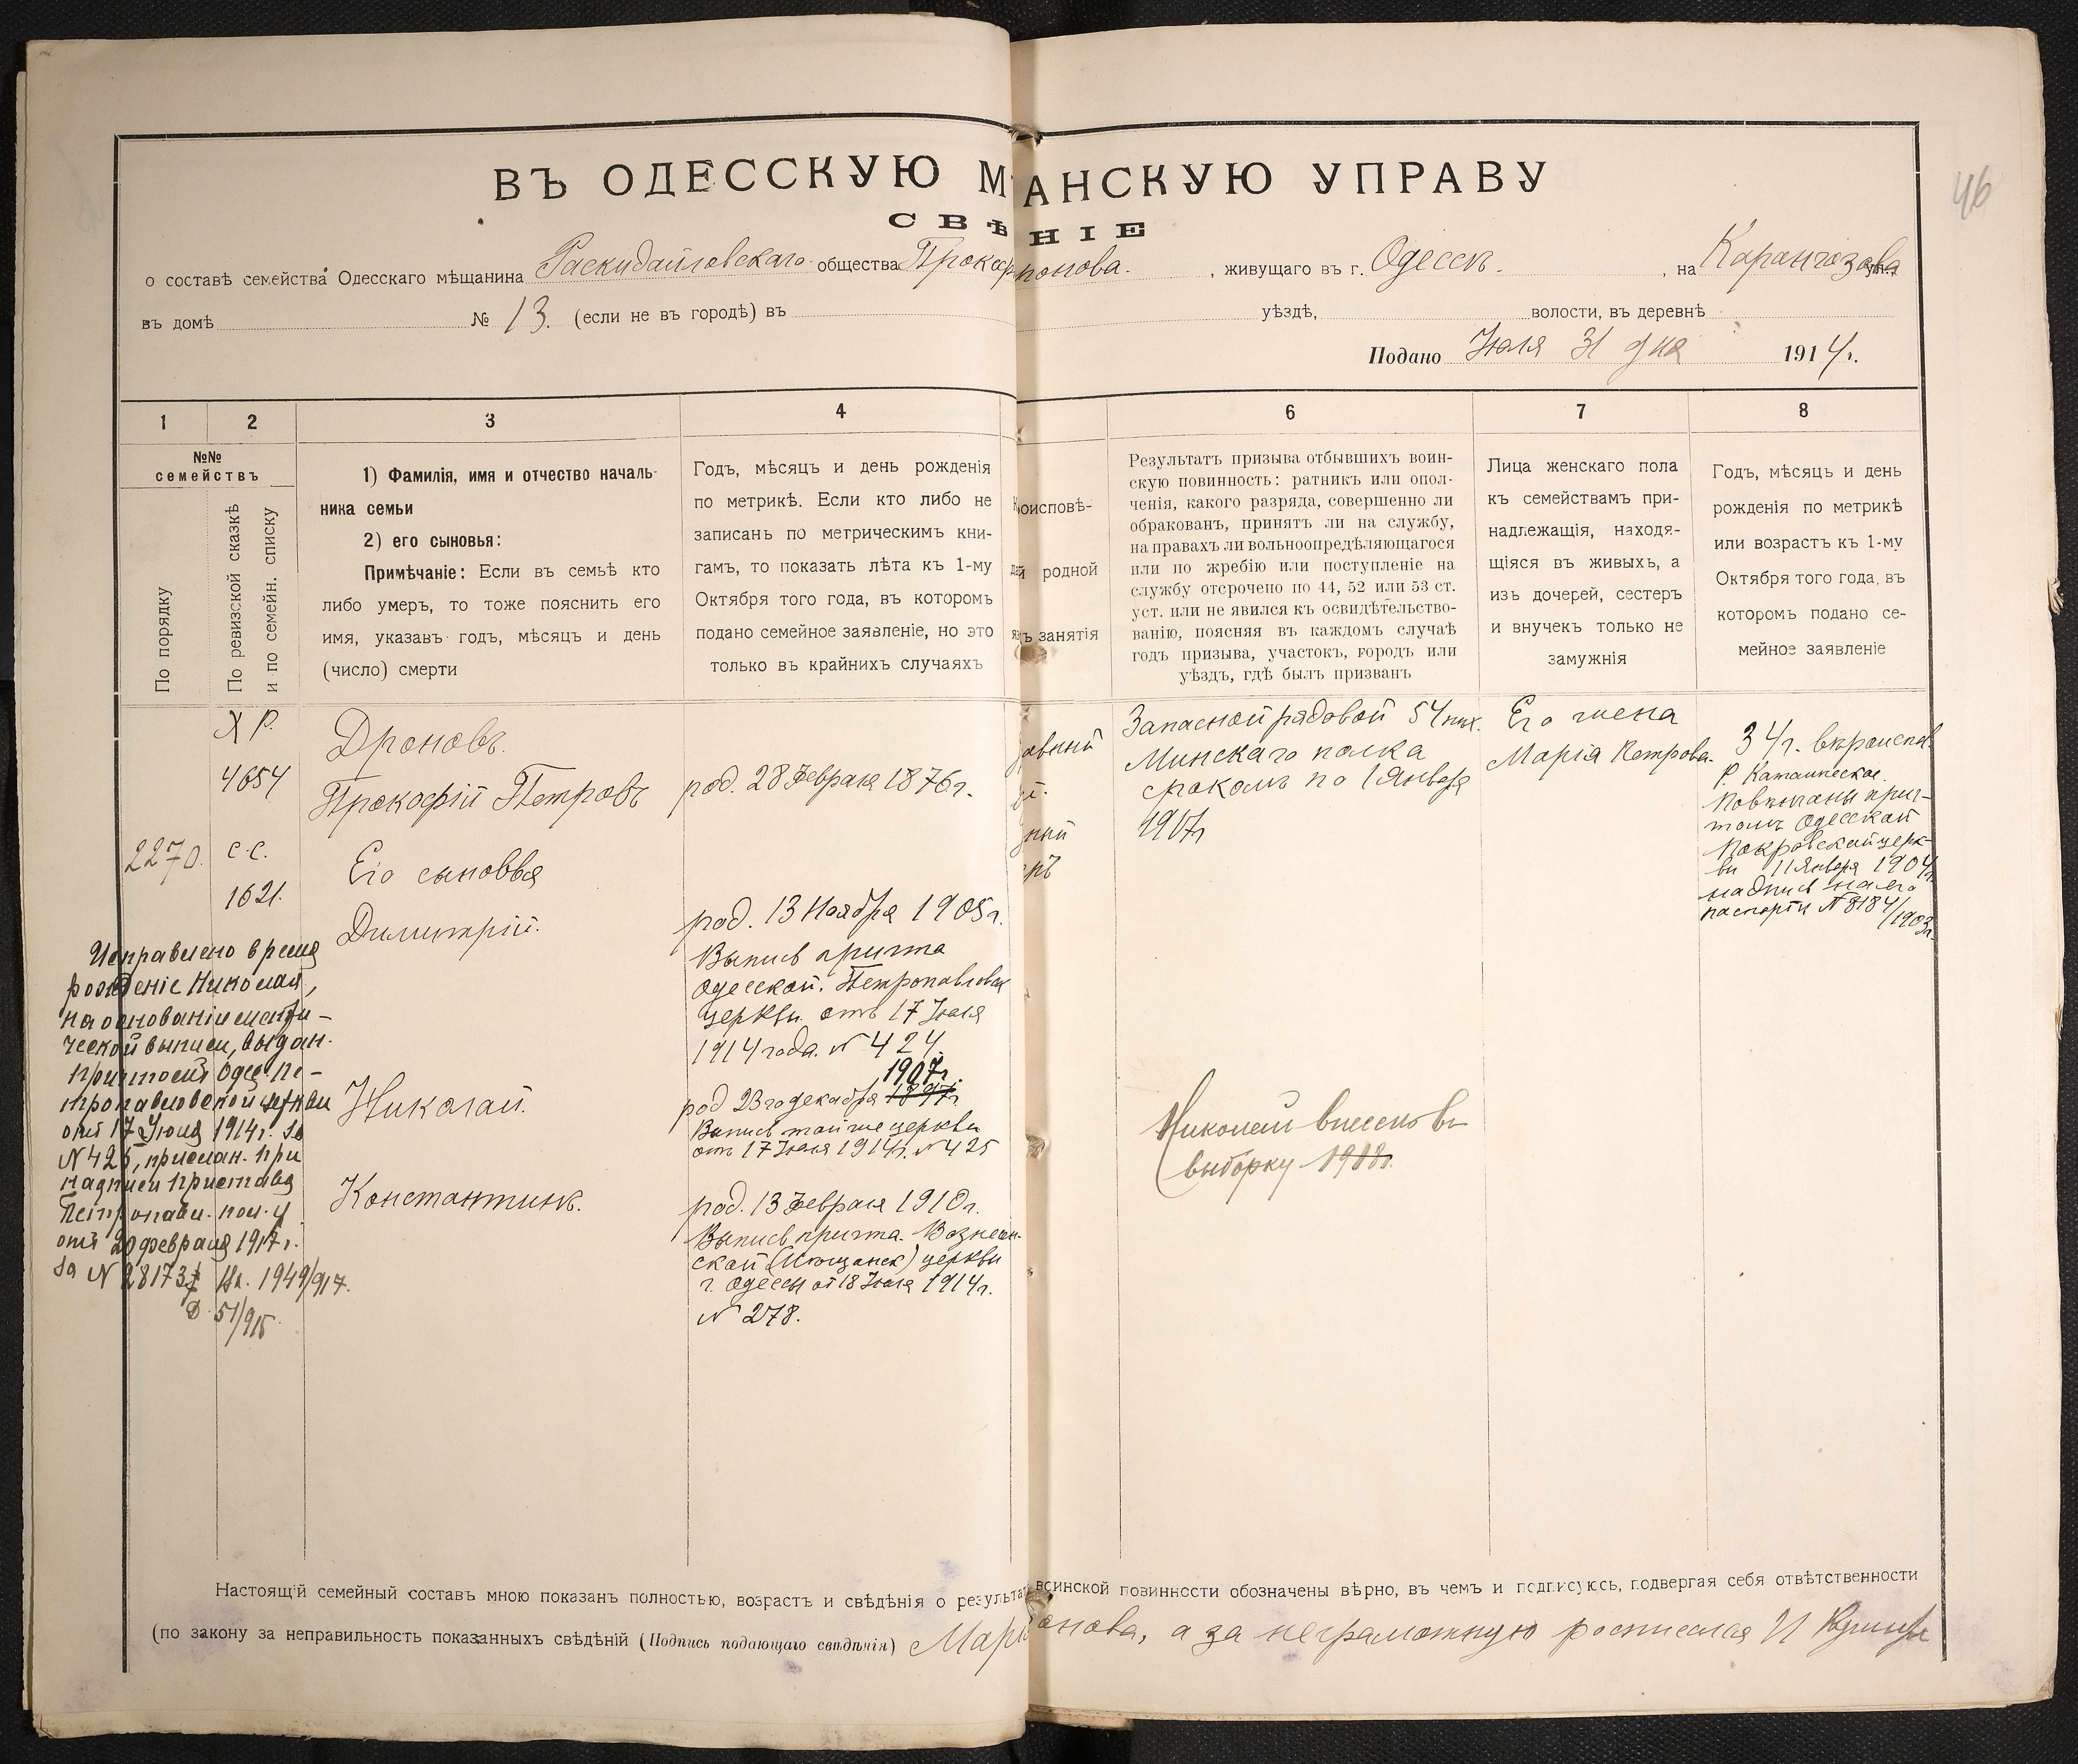 46
ВЪ ОДЕССКУЮ М АНСКУЮ УПРАВУ
СВѢ НІЕ
о составѣ семейства Одесскаго мѣщанина Раскидайловскаго общества Прокоф понова. , живущаго въ г. Одессѣ. , на Карангозова ул.
въ домѣ № 13. (если не въ городѣ) въ уѣздѣ, волости, въ деревнѣ
Подано Іюля 31 дня 1914 г.
1 2 3 4 6 7 8
№№
семействъ
По порядку
По ревизской сказкѣ
и по семейн. списку
1) Фамилія, имя и отчество началь-
ника семьи
2) его сыновья:
Примѣчаніе: Если въ семьѣ кто
либо умеръ, то тоже пояснить его
имя, указавъ годъ, мѣсяцъ и день
(число) смерти
Годъ, мѣсяцъ и день рожденія
по метрикѣ. Если кто либо не
записанъ по метрическимъ кни-
гамъ, то показать лѣта къ 1-му
Октября того года, въ которомъ
подано семейное заявленіе, но это
только въ крайнихъ случаяхъ
оисповѣ-
й родной
ъ занятія
Результатъ призыва отбывшихъ воин-
скую повинность: ратникъ или опол-
ченія, какого разряда, совершенно ли
обракованъ, принятъ ли на службу,
на правахъ ли вольноопредѣляющагося
или по жребію или поступленіе на
службу отсрочено по 44, 52 или 53 ст.
уст. или не явился къ освидѣтельство-
ванію, поясняя въ каждомъ случаѣ
годъ призыва, участокъ, городъ или
уѣздъ, гдѣ былъ призванъ
Лица женскаго пола
къ семействамъ при-
надлежащія, находя-
щіяся въ живыхъ, а
изъ дочерей, сестеръ
и внучекъ только не
замужнія
Годъ, мѣсяцъ и день
рожденія по метрикѣ
или возрастъ къ 1-му
Октября того года, въ
которомъ подано се-
мейное заявленіе
2270.
Х Р.
4654
с.с.
1621.
Дроновъ.
Прокофій Петровъ
Его сыновья
Димитрій.
Николай.
Константинъ.
род. 28 Февраля 1876 г.
род. 13 Ноября 1905 г.
Выпись причта
Одесской. Петропавловск
церкви. отъ 17 Іюля
1914 года. № 424.
1907 г.
род 23 го декабря 1897 г.
Выпись той же церкви
отъ 17 Іюля 1914 г. № 425
род. 13 Февраля 1910 г.
Выпись причта. Вознесен-
ской (Мѣщанск) церкви
г. Одессы от 18 Іюля 1914 г.
№ 278.
Запасной рядовой 54 пѣх.
Минскаго полка
срокомъ по 1 Января
1917 г
Николай внесенъ въ
выборку 1918 г.
Его жена
Марія Петрова.
34 г. вѣроиспов.
Р. Католическое.
Повѣнчаны прич-
томъ Одесской
Покровской церк-
ви 11 Января 1904 г.
надпись на его
паспортѣ № 8184/1903 г.
Исправлено время
рожденіе Николая,
на основаніи метри-
ческой выписи, выдан.
причтомъ Одес. Пе-
тропавловской церкви
отъ 17 Іюля 1914 г. за
№ 425, прислан. при
надписи пристава
Петропавл. пол. у
отъ 20 февраля 1917 г.
за № 28173 Вх. 1949/917.
Д 51/915
Настоящій семейный составъ мною показанъ полностью, возрастъ и свѣдѣнія о результат воинской повинности обозначены вѣрно, въ чемъ и подписуюсь, подвергая себя отвѣтственности
(по закону за неправильность показанныхъ свѣдѣній (Подпись подающаго свѣдѣнія) Марі онова, а за неграмотную росписался И